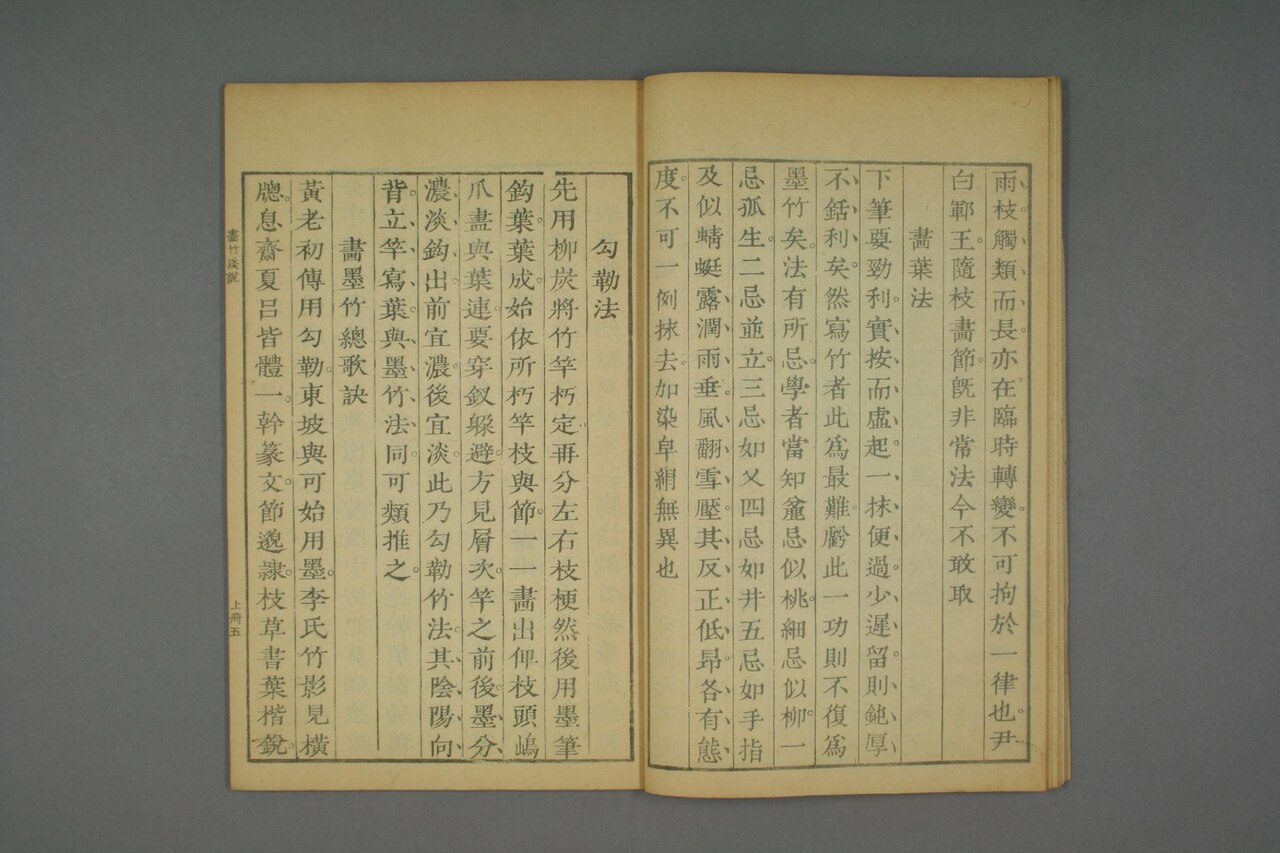 雨枝觸類而長。亦在臨時轉變。不可拘於一律也。尹
白鄆王。隨枝畵節。旣非常法今不敢取
畵葉法
下筆要勁利。實按而虛起。一抹便過。少遲留。則鈍厚
不銛利矣。然寫竹者此爲最難。虧此一功則不復爲
墨竹矣。法有所忌。學者當知。麄忌似桃。細忌似柳。一
忌孤生。二忌並立。三忌如乂。四忌如井。五忌如手指
及似蜻蜓。露潤雨垂。風翻雪壓。其反正低昂。各有態
度。不可一例抹去。如染皁絹無異也
勾勒法
先用柳炭將竹竿朽定。再分左右枝梗。然後用墨筆
鈎葉。葉成。始依所朽竿枝與節。一一畵出。俾枝頭
爪盡與葉連。要穿釵躱避。方見層次。竿之前後。墨分
濃淡鈎出。前宜濃。後宜淡。此乃勾勒竹法。其陰陽向
背。立竿寫葉。與墨竹法同。可類推之。
畵墨竹總歌訣
黃老初傳用勾勒。東坡與可始用墨。李氏竹影見橫
牕。息齋夏呂皆體一。幹篆文。節邈隷。枝草書。葉楷銳。
畵竹淺說
上冊五